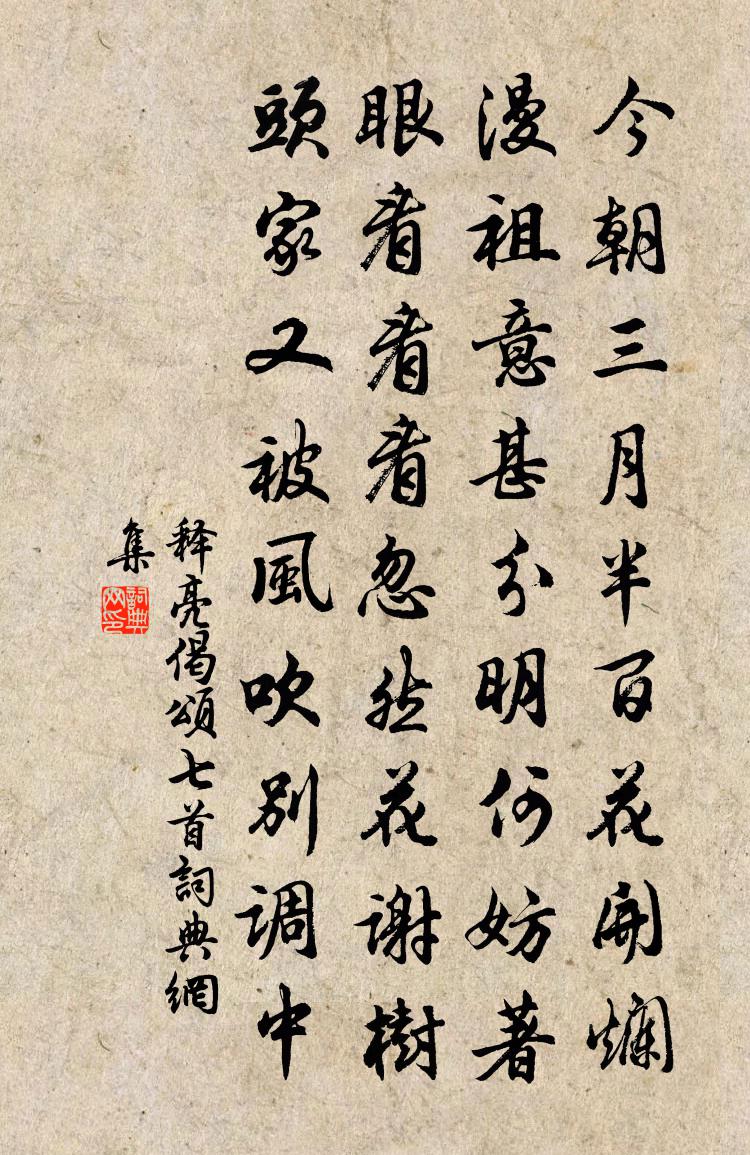 今朝三月半百花開爛
漫祖意甚分明何妨著
眼看看看忽然花謝樹
頭家又被風吹別調中
释亮偈頌七首詞典網
集
詞典
网印